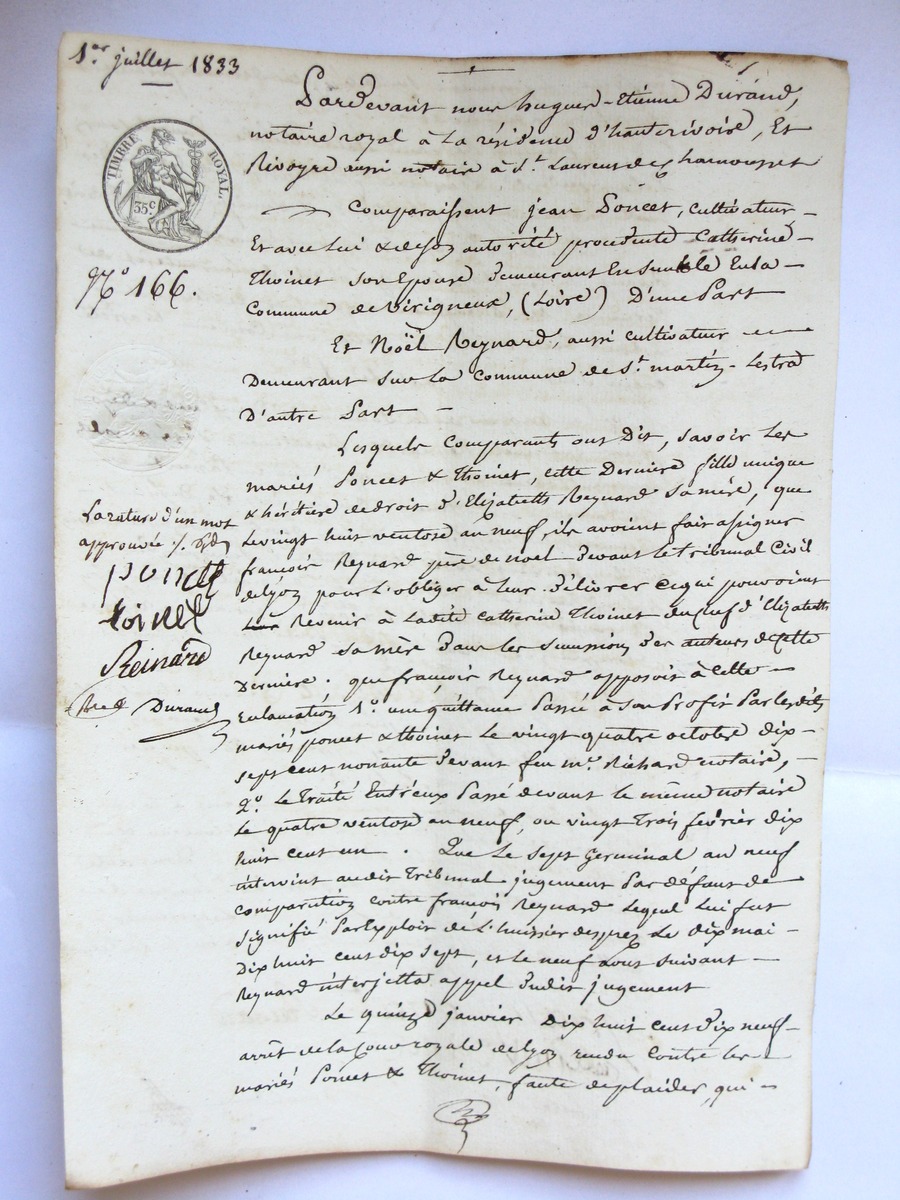 1.er juillet 1833
TIMBRE ROYAL.
35c
N.o 166.
Pardevant nous hugues-Etienne Durand,
notaire royal à La résidence d'hauterivoire, Et
Rivoyre aussi notaire à St. Laurent de Chamousset
Comparaissent jean Poncet, Cultivateur
Et avec Lui & de son autorité procedente Catherine
Thoinet son Epouse demeurant Ensemble En la
Commune de Virigneux, (Loire) D'une Part
Et Noël Reynard, aussi cultivateur
Demeurant sur la Commune de St. martin-Lestra
D'autre Part
Lesquels Comparants ont Dit, savoir Les
mariés Poncet & Thoinet, cette Derniere fille unique
& héritière de droit d'Elizabeth Reynard sa mère, que
Le vingt huit ventose an neuf, ils avoient fait assigner
françois Reynard père de noel devant Le tribunal Civil
de Lyon pour L'obliger à leur délivrer ce qui pouvoient
Revenir à Ladite Catherine Thoinet du chef d'Elizabeth
Reynard sa mère dans les successions des auteurs de Cette
Derniere. que françois Reynard opposoit à Cette
Reclamation 1.o une quittance Passée à Son Profit Par Les dits
mariés poncet & thoinet Le vingt quatre octobre dix
sept cent nonante devant feu me. Richard notaire,
2.o Le Traité Entr'eux Passé devant le même notaire
Le quatre ventose an neuf, ou vingt Trois fevrier dix
huit cent un. Que Le sept Germinal an neuf
intervint audit Tribunal jugement Par défaut de
comparution contre françois Reynard Lequel Lui fut
signifié Par Exploit de L'huissier desprez Le dix mai
Dix huit cent dix sept, et le neuf aout suivant
Reynard interjetta appel dudit jugement
Le quinze janvier Dix huit cent dix neuf
arrêt de la Cour royale de Lyon rendu Contre les
mariés Poncet & Thoinet, faute de plaider, qui
La rature d'un mot
approuvée
poncet
toinet
Reinard
Durand